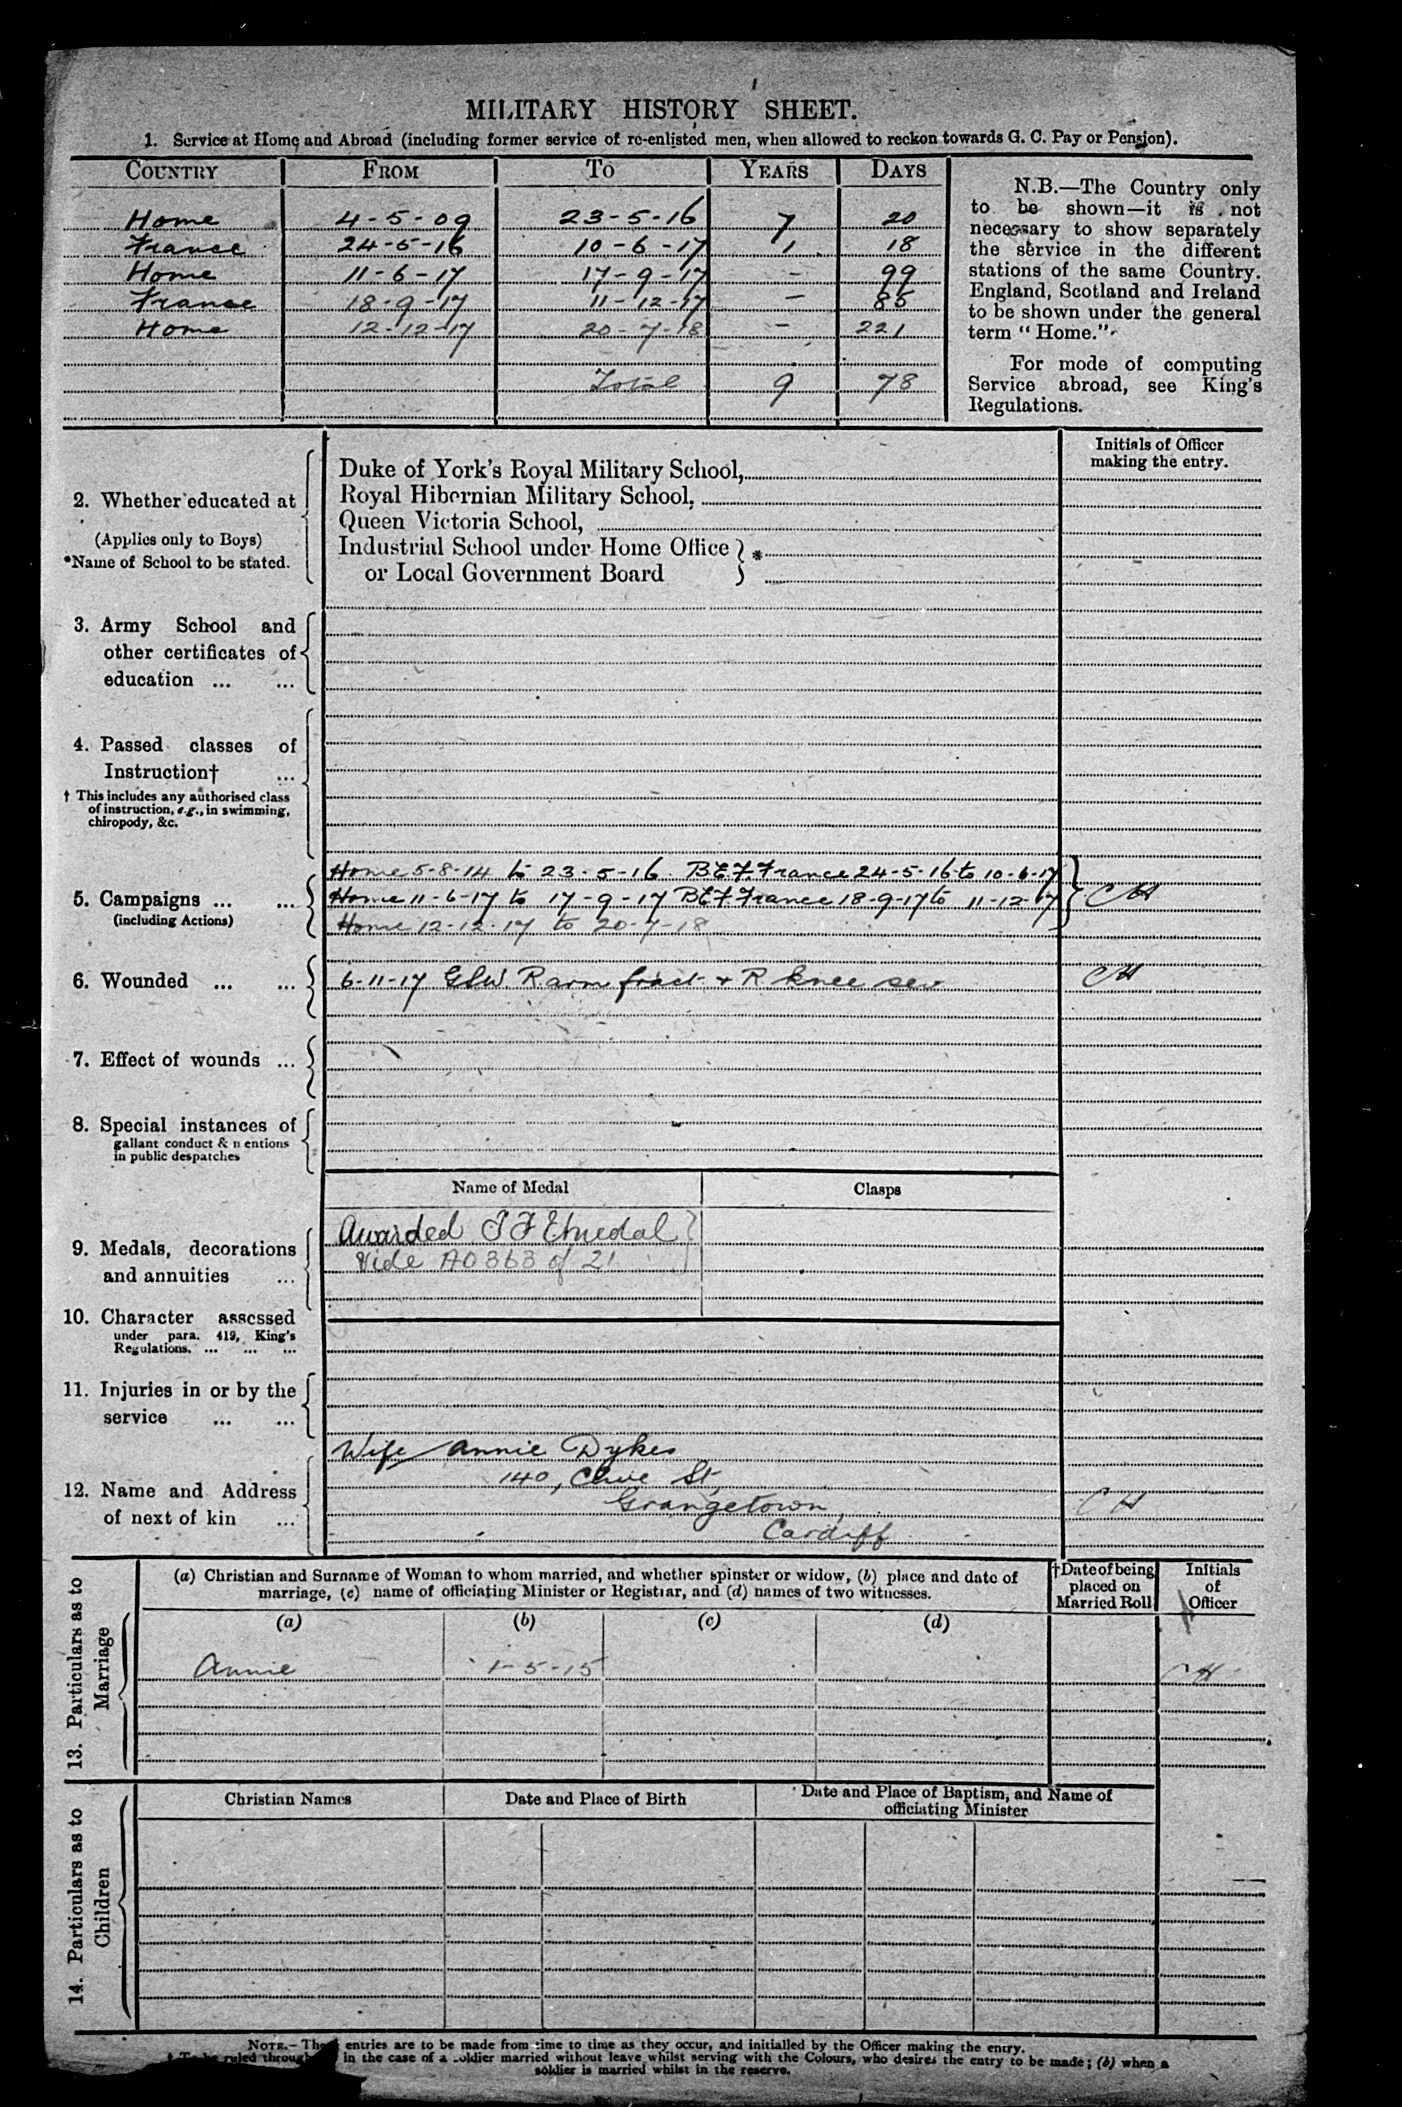 MILITARY HISTORY SHEET.
1. Service at Home and Abroad (including former service of re-enlisted men, when allowed to reckon towards G. C. Pay or Pension).
COUNTRY FROM TO YEARS DAYS
Home 4-5-09 23-5-16 7 20
France 24-5-16 10-6-17 1 18
Home 11-6-17 17-9-17 - 99
France 18-9-17 11-12-17 - 85
Home 12-12-17 20-7-18 - 221
Total 9 78
N.B.—The Country only
to be shown—it is not
necessary to show separately
the service in the different
stations of the same Country.
England, Scotland and Ireland
to be shown under the general
term "Home."
For mode of computing
Service abroad, see King's
Regulations.
Initials of Officer
making the entry.
2. Whether educated at
(Applies only to Boys)
*Name of School to be stated.
Duke of York's Royal Military School,
Royal Hibernian Military School,
Queen Victoria School,
Industrial School under Home Office } *
or Local Government Board }
3. Army School and
other certificates of
education ... ...
4. Passed classes of
Instruction† ...
† This includes any authorised class
of instruction, e.g., in swimming,
chiropody, &c.
5. Campaigns ... ...
(including Actions)
Home 5-8-14 to 23-5-16 BEF. France 24-5-16 to 10-6-17
Home 11-6-17 to 17-9-17 BEF France 18-9-17 to 11-12-17
Home 12-12-17 to 20-7-18
CH
6. Wounded ... ...
6-11-17 GSW. R arm fract + R knee sev
CH
7. Effect of wounds ...
8. Special instances of
gallant conduct & mentions
in public despatches
Name of Medal Clasps
9. Medals, decorations
and annuities ...
Awarded T F E medal
Vide AO 363 of 21
10. Character assessed
under para. 419, King's
Regulations. ... ... ...
11. Injuries in or by the
service ... ...
12. Name and Address
of next of kin ...
Wife Annie Dykes
140, Clive St,
Grangetown,
Cardiff
CH
13. Particulars as to
Marriage
(a) Christian and Surname of Woman to whom married, and whether spinster or widow, (b) place and date of
marriage, (c) name of officiating Minister or Registrar, and (d) names of two witnesses.
†Date of being
placed on
Married Roll
Initials
of
Officer
(a) (b) (c) (d)
Annie 1-5-15 CH
14. Particulars as to
Children
Christian Names
Date and Place of Birth
Date and Place of Baptism, and Name of
officiating Minister
NOTE.—These entries are to be made from time to time as they occur, and initialled by the Officer making the entry.
† To be ruled through in the case of a soldier married without leave whilst serving with the Colours, who desires the entry to be made; (b) when a
soldier is married whilst in the reserve.